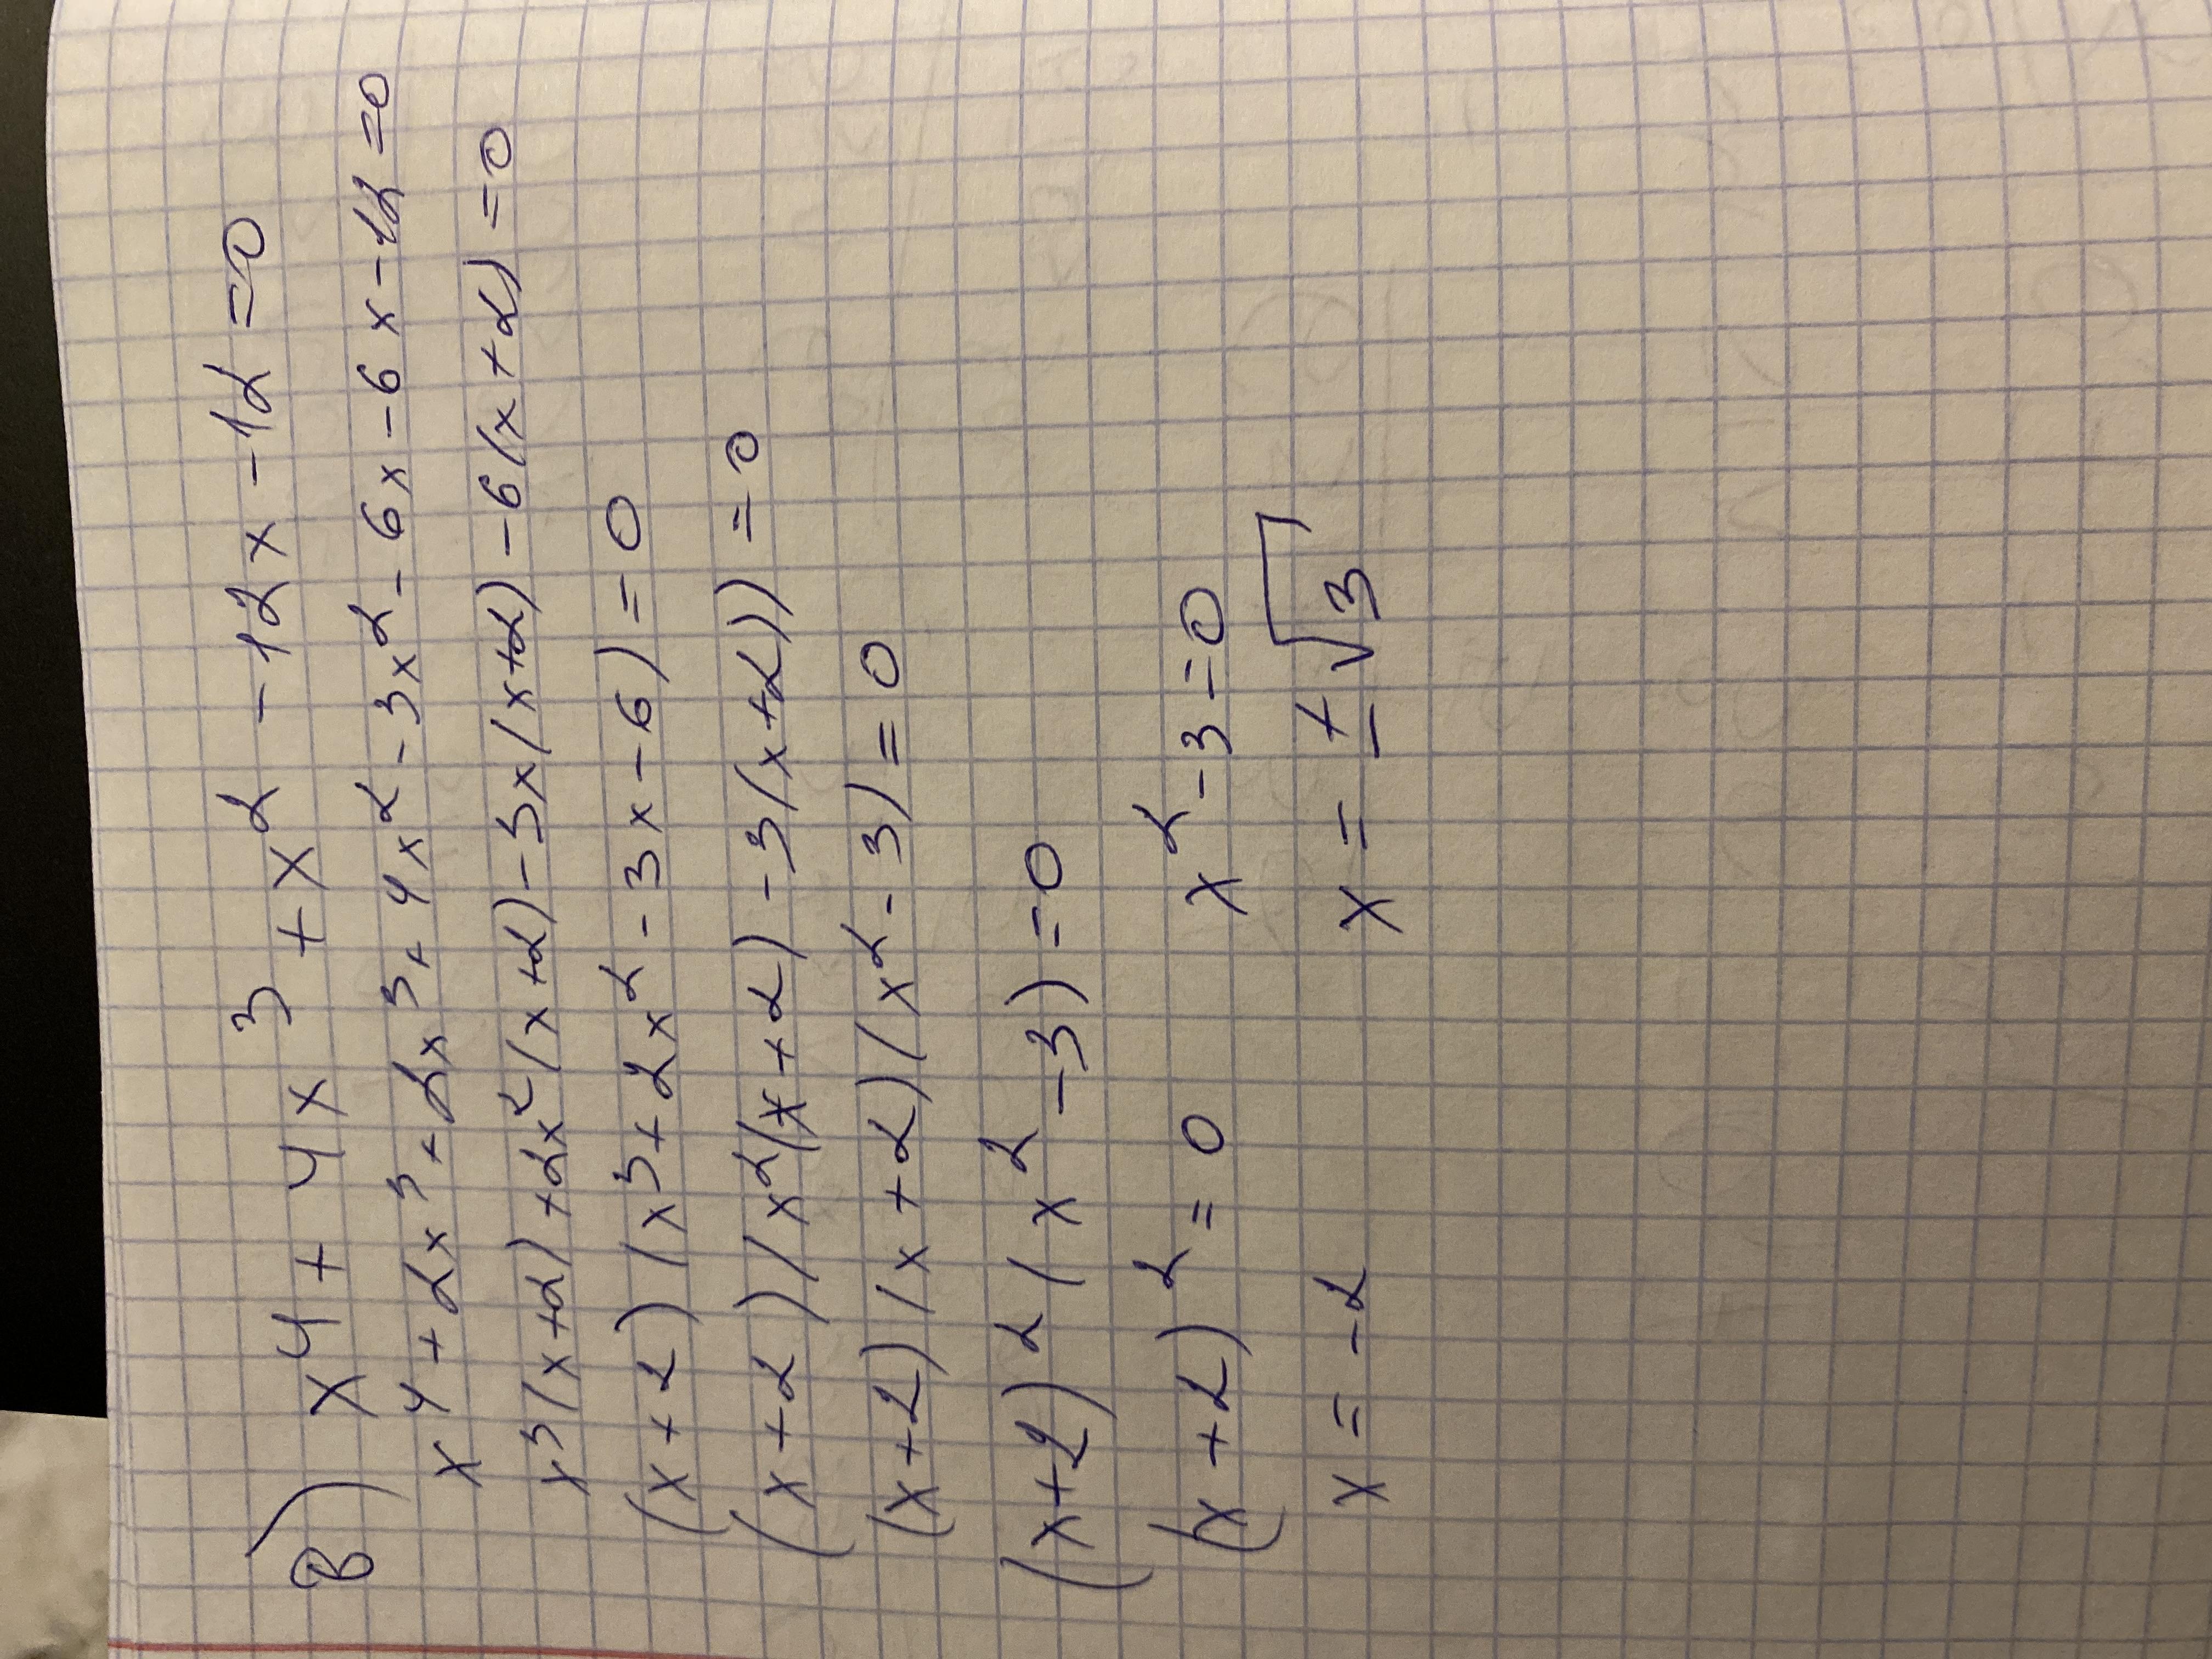 в) x⁴ + 4x³ + x² - 12x - 12 = 0
x⁴ + 2x³ + 2x³ + 4x² - 3x² - 6x - 6x - 12 = 0
x³(x+2) + 2x²(x+2) - 3x(x+2) - 6(x+2) = 0
(x+2)(x³ + 2x² - 3x - 6) = 0
(x+2)(x²(x+2) - 3(x+2)) = 0
(x+2)(x+2)(x² - 3) = 0
(x+2)²(x² - 3) = 0
(x+2)² = 0 x² - 3 = 0
x = -2 x = ±√3